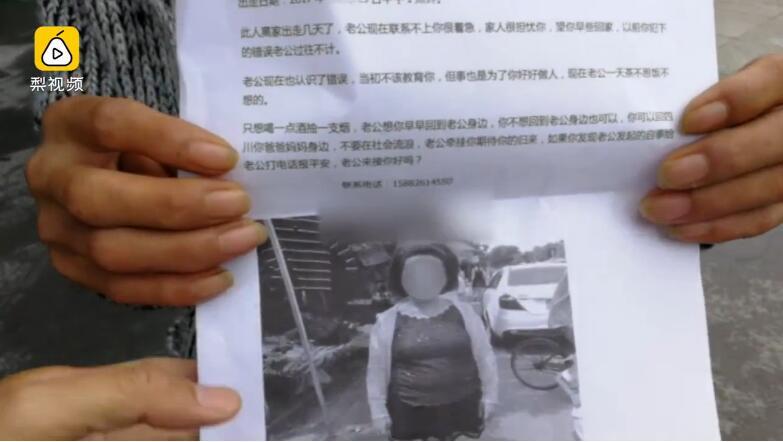 梨视频
出走日期：2017年
此人离家出走几天了，老公现在联系不上你很着急，家人很担忧你，望你早些回家，以前你犯下
的错误老公过往不计。
老公现在也认识了错误，当初不该教育你，但事也是为了你好好做人，现在老公一天茶不思饭不
想的。
只想喝一点酒抽一支烟，老公想你早早回到老公身边，你不想回到老公身边也可以，你可以回四
川你爸爸妈妈身边，不要在社会流浪，老公牵挂你期待你的归来，如果你发现老公发起的启事给
老公打电话报平安，老公来接你好吗？
联系电话：